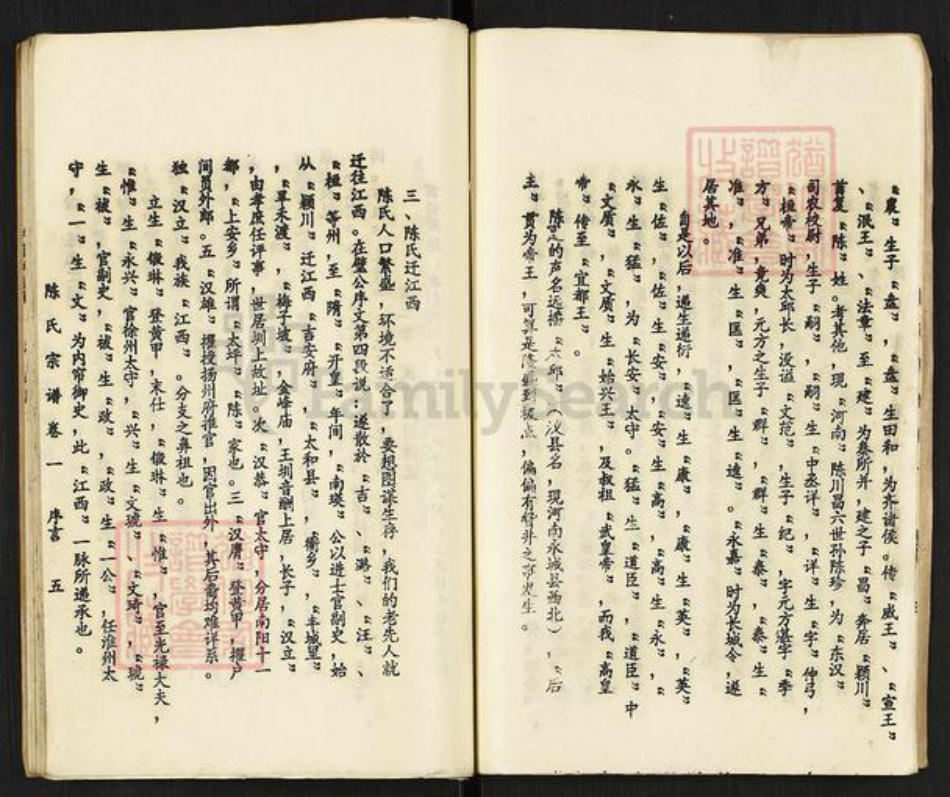 “農”生子“盘”，“盘”生田和，为齐诸侯。传“威王”、“宣王”
、“泯王”、“法章”至“建”为秦所并，建之子“昌”奔居“颖川”
首复“陈”姓。考其他，现“河南”陈川昌六世孙陈珍，为“东汉”
司农校尉，生子“嗣”，“嗣”生“中丞详”，“详”生“字”仲弓，
“桓帝”时为太邱长，没谥“文范”，生子“纪”，字元方谌字“季
方”兄弟，竟爽，元方之生子“群”，“群”生“泰”，“泰”生“
准”，“准”生“匡”，“匡”生“逵”。“永嘉”时为长城令，遂
居其地。
自是以后，递生递衍，“逵”生“康”，“康”生“英”，“英”
生“佐”，“佐”生“安”，“安”生“高”，“高”生“永”，“
永”生“猛”，为“长安”太守。“猛”生“道臣”，“道臣”中
“文质”，“文质”生“始兴王”，及叔祖“武皇帝”，而我“高皇
帝”传至“宜都王”。
陈的声名远播“太邱”（汉县名，现河南永城县西北），“后
主”贯为帝王，可算是达到极点，偏偏有
三、陈氏迁江西
陈氏人口繁盛，环境不适合了，要想图谋生存，我们的老先人就
迁往江西。在璧公序文第四段说：遂散於“吉”、“潞”、“汪”、
“桓”等州，至“隋”“开皇”年间，“南瑛”公以进士官副史，始
从“颖川”迁江西“吉安府”，“太和县”，“衡乡”，“丰城望”
，“早禾渡”，“梅子坡”，金峰庙，王圳音酬上居，长子，“汉立”
，由孝庶任评事，世居圳上故址。次“汉恭”官太守，分居南阳十一
都，“上安乡”所谓“太坪”“陈”家也。三“汉膺”登黄甲，擢户
间员外郎。五“汉雄”擢授扬州府推官，因官出外，其后裔均难详系。
独“汉立”我族“江西”。分支之鼻祖也。
立生“镦琳”登黄甲，未仕，“镦琳”生“惟”，官至光禄大夫，
“惟”生“永兴”官徐州太守，“兴”生“文琥”、“文琦”，“琥”
生“祓”，官副史，“祓”生“政”，“政”生“一公”，任淮州太
守，“一”生“文”为内帘御史，此“江西”一脉所递承也。
陈氏宗谱卷一 序言 五
FamilySearch